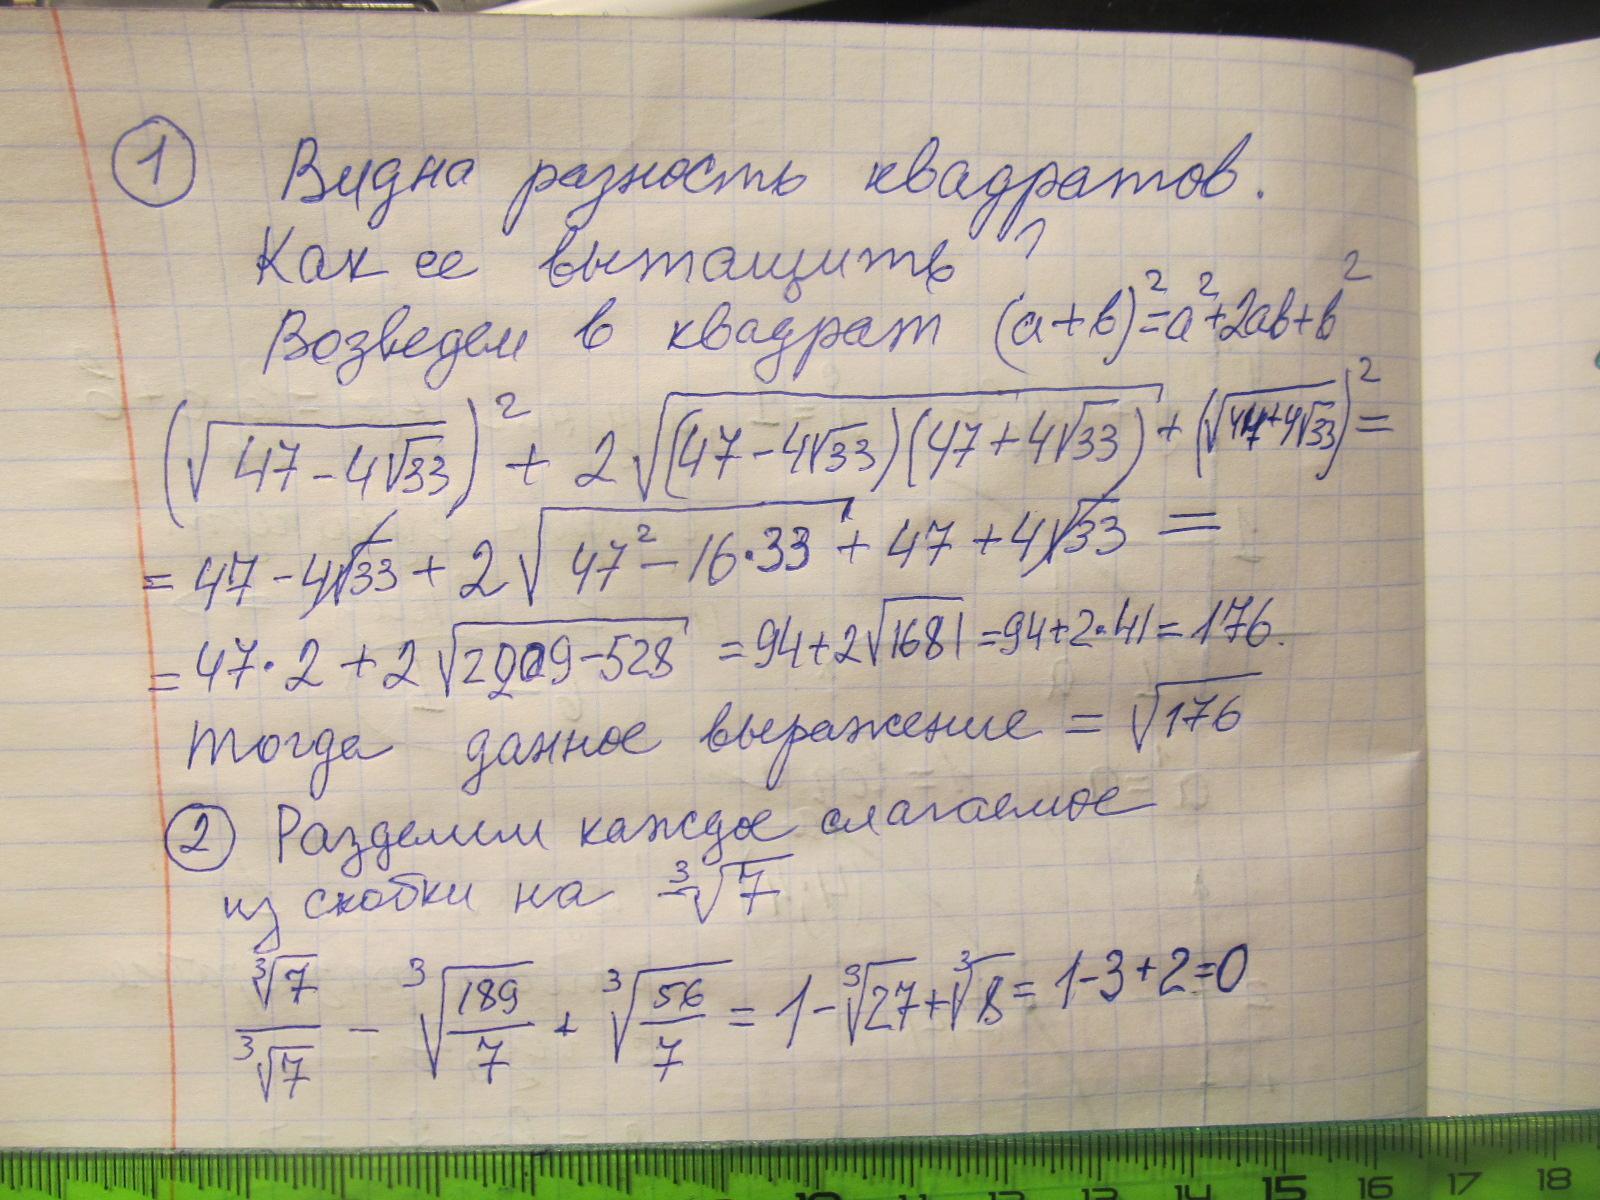 1 Видна разность квадратов.
Как ее вытащить?
Возведем в квадрат (a+b)²=a²+2ab+b²
(√(47-4√33))² + 2√((47-4√33)(47+4√33)) + (√(47+4√33))² =
= 47 - 4√33 + 2√(47² - 16·33) + 47 + 4√33 =
= 47·2 + 2√(2209-528) = 94+2√1681 = 94+2·41 = 176.
Тогда данное выражение = √176
2 Разделим каждое слагаемое
из скобки на ∛7
∛7/∛7 - ∛(189/7) + ∛(56/7) = 1-∛27+∛8 = 1-3+2=0
12 13 14 15 16 17 18